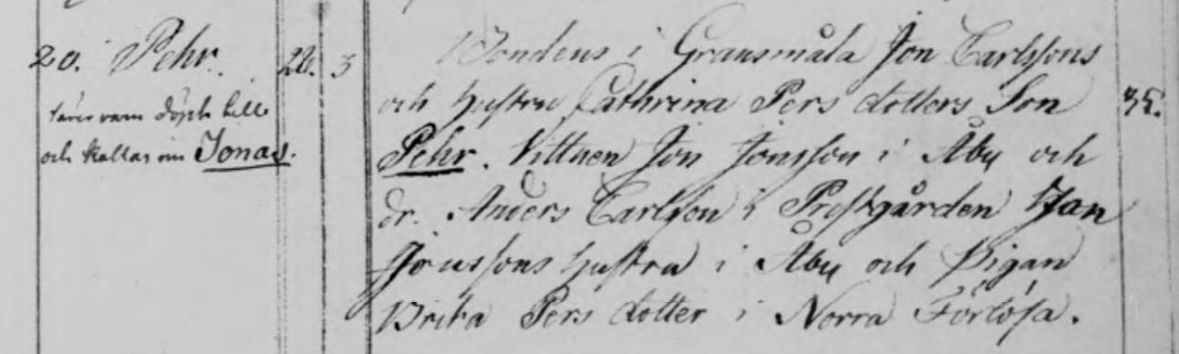 20. Pehr. 22. 3
döpt
och kallas nu Jonas.
Bondens i Gransmåla Jon Carlssons
och hustru Cathrina Pers dotters Son 35.
Pehr. Vittnen Jon Jonsson i Åby och
dr. Anders Carlsson i Prestgården Jan
Jönssons hustru i Åby och Pigan
Brita Pers dotter i Norra Förlösa.